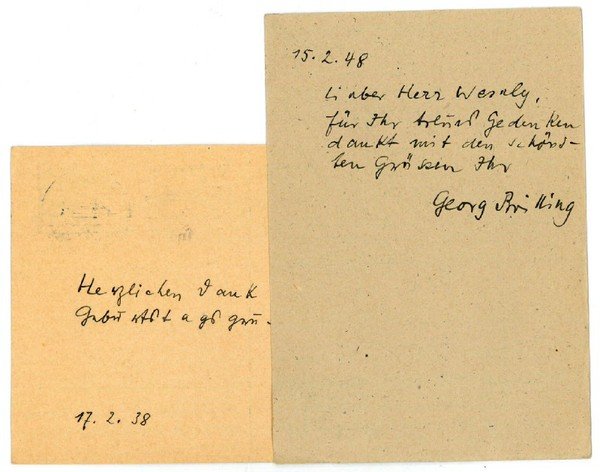 15.2.48
Lieber Herr Wesnly,
für Ihr treues Gedenken
dankt mit den schöns-
ten Grüssen Ihr
Georg Britting
Herzlichen Dank
Geburtstagsgrü-
17.2.38